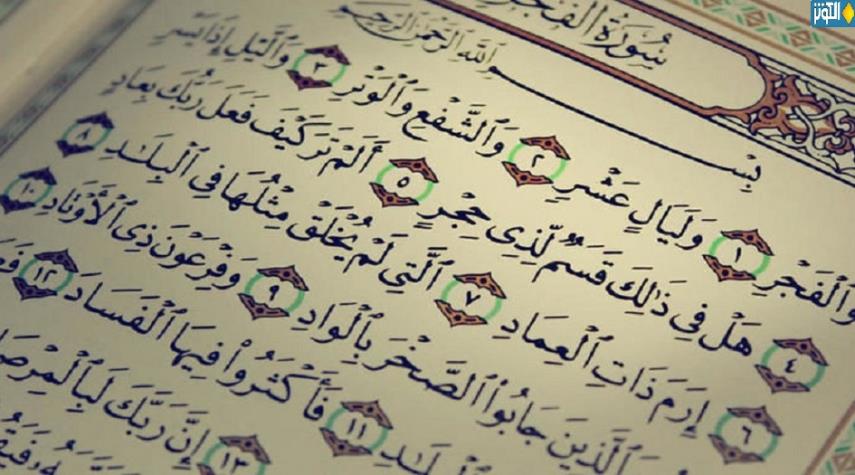 الكوثر
سُورَةُ الفَجْرِ
بِسْمِ اللَّهِ الرَّحْمَٰنِ الرَّحِيمِ
وَالْفَجْرِ ١ وَلَيَالٍ عَشْرٍ ٢ وَالشَّفْعِ وَالْوَتْرِ ٣ وَاللَّيْلِ إِذَا يَسْرِ
٤ هَلْ فِي ذَٰلِكَ قَسَمٌ لِّذِي حِجْرٍ ٥ أَلَمْ تَرَ كَيْفَ فَعَلَ رَبُّكَ بِعَادٍ
٦ إِرَمَ ذَاتِ الْعِمَادِ ٧ الَّتِي لَمْ يُخْلَقْ مِثْلُهَا فِي الْبِلَٰدِ ٨
الَّذِينَ جَابُوا الصَّخْرَ بِالْوَادِ ٩ وَفِرْعَوْنَ ذِي الْأَوْتَادِ ١٠
١١ فَأَكْثَرُوا فِيهَا الْفَسَادَ ١٢
١٣ إِنَّ رَبَّكَ